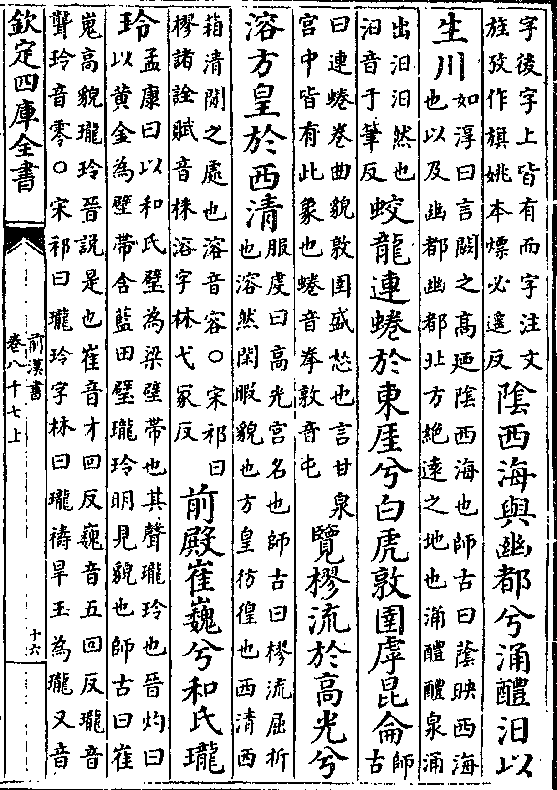 字後字上皆有而字注文
旌攷作旗姚本熛必遥反
隂西海與幽都兮涌醴汨以
生川
如淳曰言闕之高廼隂西海也師古曰蔭映西海
也以及幽都幽都北方絶遠之地也涌醴醴泉涌
出汨汨然也
汨音于筆反
蛟龍連蜷於東厓兮白虎敦圉虖昆侖
師
古
曰連蜷卷曲貌敦圉盛怒也言甘泉
宫中皆有此象也蜷音拳敦音屯
覽樛流於高光兮
溶方皇於西清
服虔曰高光宫名也師古曰樛流屈折
也溶然閑暇貌也方皇彷徨也西清西
箱清閒之處也溶音容○宋祁曰
樛諸詮賦音株溶字林弋冢反
前殿崔巍兮和氏瓏
玲
孟康曰以和氏璧為梁壁帶也其聲瓏玲也晉灼曰
以黄金為壁帶含藍田璧瓏玲明見貌也師古曰崔
嵬高貌瓏玲晉説是也崔音才回反巍音五回反瓏音
聾玲音零○宋祁曰瓏玲字林曰瓏禱旱玉為瓏又音
欽定四庫全書
前漢書
卷八十七上
十六